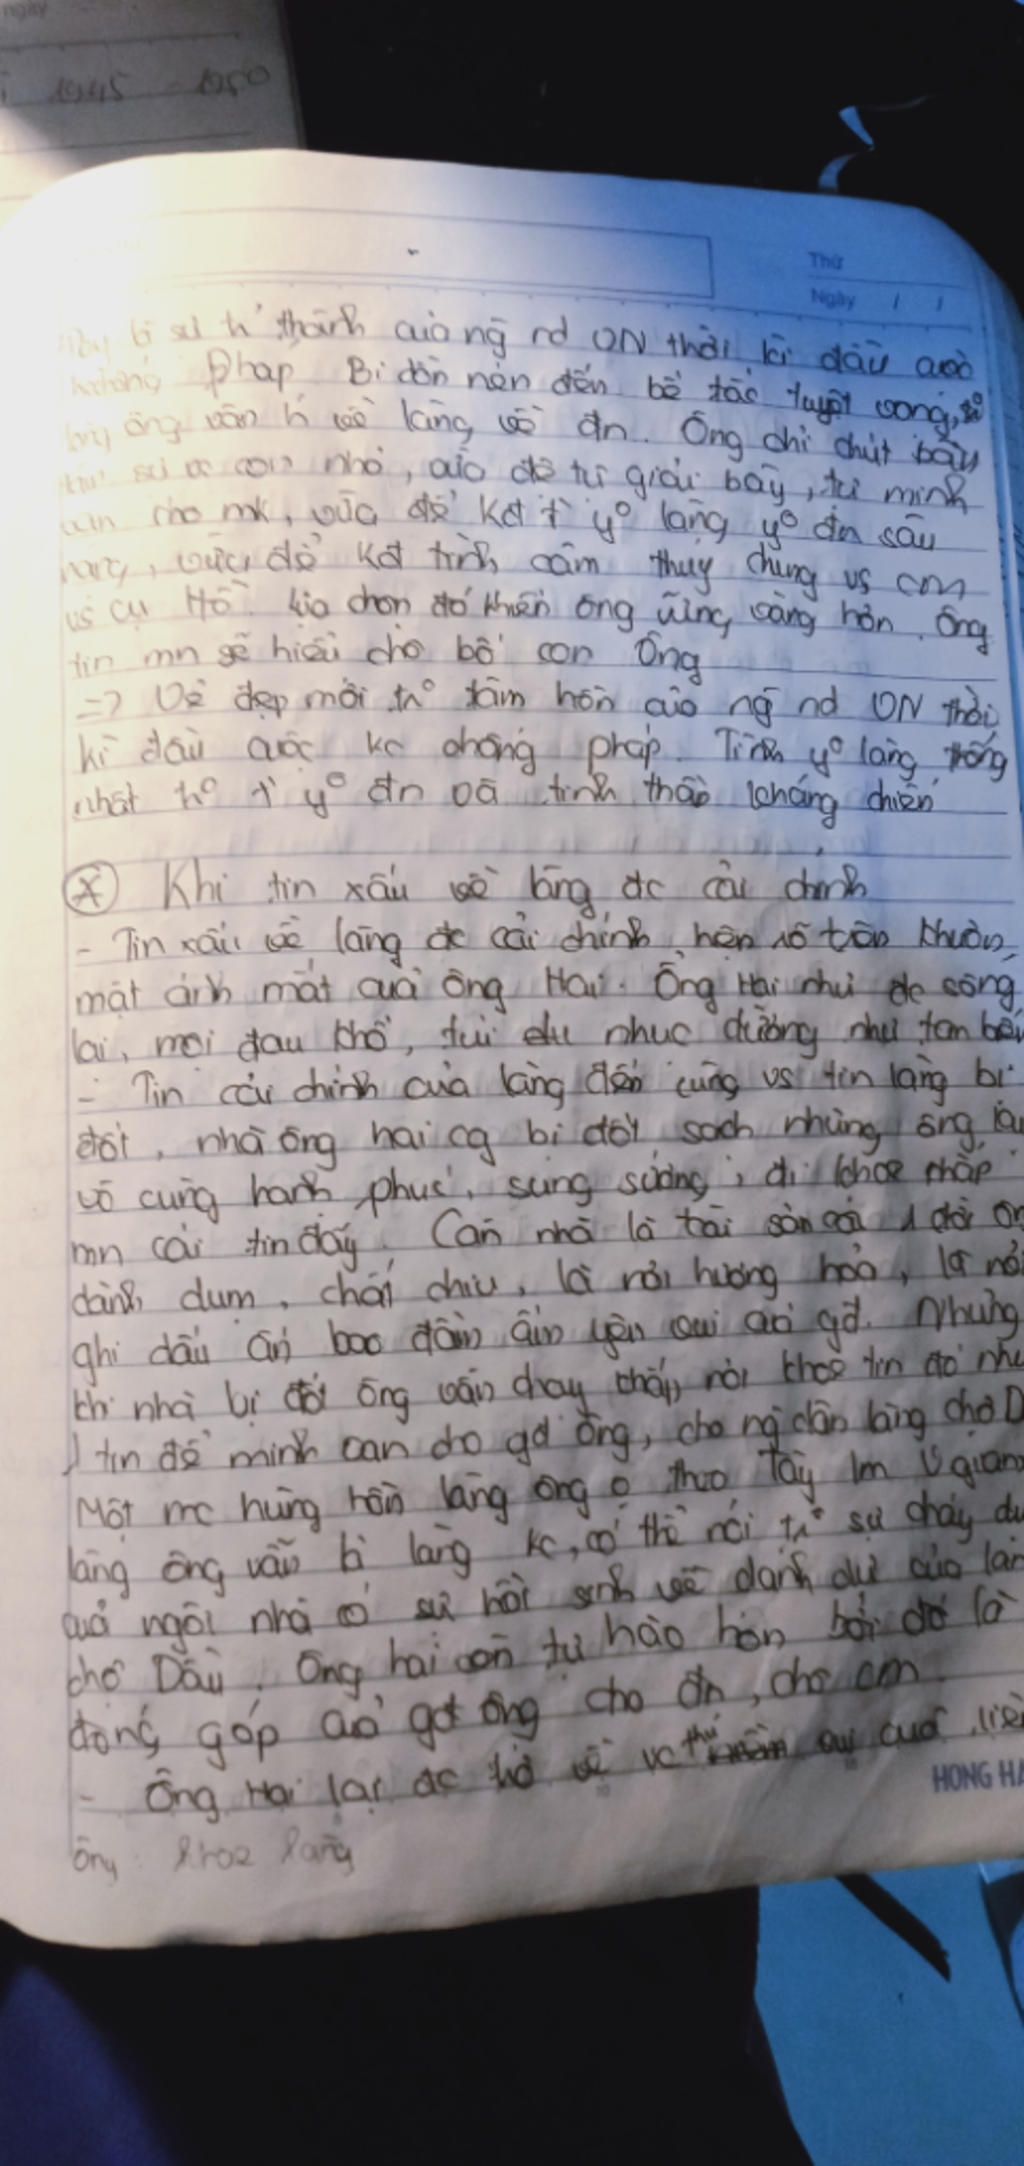 1945 - 1950
Thứ
Ngày / /
thành của ng nd VN thời kì đầu cuộc
kháng Pháp. Bị dồn nén đến bế tắc tuyệt vọng,
ông vẫn h về làng, về đn. Ông chỉ chút bầu
con nhỏ, để tự giãi bày, tự minh
oan cho mk, vừa để kđ t y° làng y° đn sâu
nặng, vừa để kđ tình cảm thuỷ chung vs cm
vs cụ Hồ. lựa chọn đó khiến ông vững vàng hơn. Ông
tin mn sẽ hiểu cho bố con Ông
=> Vẻ đẹp mới tr° tâm hồn của ng nd VN thời
kì đầu cuộc kc chống pháp. Tình y° làng thống
nhất tr° t y° đn và tinh thần kháng chiến
* Khi tin xấu về làng đc cải chính
- Tin xấu về làng đc cải chính, hiện rõ trên khuôn
mặt ánh mắt của ông Hai. Ông Hai như đc sống
lại, mọi đau khổ, tủi nhục dường như tan biến
- Tin cải chính của làng đến cùng vs tin làng bị
đốt, nhà ông hai cg bị đốt sạch nhưng ông lại
vô cùng hạnh phúc, sung sướng, đi khoe khắp
mn cái tin đấy. Căn nhà là tài sản cả 1 đời ôn
dành dụm, chắt chiu, là nơi hương hoả, là nơi
ghi dấu ấn bao đầm ấm yên vui của gđ. Nhưng
khi nhà bị đốt ông vẫn chạy khắp nơi khoe tin đó như
1 tin để minh oan cho gđ ông, cho ng dân làng chợ D
Một mc hùng hồn làng ông o theo Tây lm Vgian
làng ông vẫn là làng kc, có thể nói tr° sự cháy dụ
của ngôi nhà có sự hồi sinh về danh dự của làn
chợ Dầu. Ông hai còn tự hào hơn bởi đó là
đóng góp của gđ ông cho đn, cho cm.
- Ông Hai lại đc trở về vc thú vui cuả liề
ông: khoe làng
HONG HA